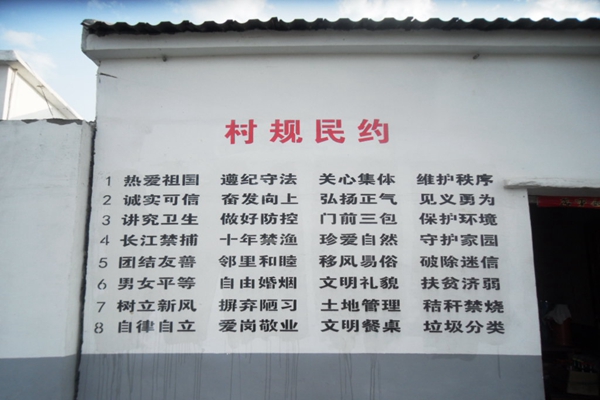 村规民约
1 热爱祖国 遵纪守法 关心集体 维护秩序
2 诚实可信 奋发向上 弘扬正气 见义勇为
3 讲究卫生 做好防控 门前三包 保护环境
4 长江禁捕 十年禁渔 珍爱自然 守护家园
5 团结友善 邻里和睦 移风易俗 破除迷信
6 男女平等 自由婚烟 文明礼貌 扶贫济弱
7 树立新风 摒弃陋习 土地管理 秸秆禁烧
8 自律自立 爱岗敬业 文明餐桌 垃圾分类